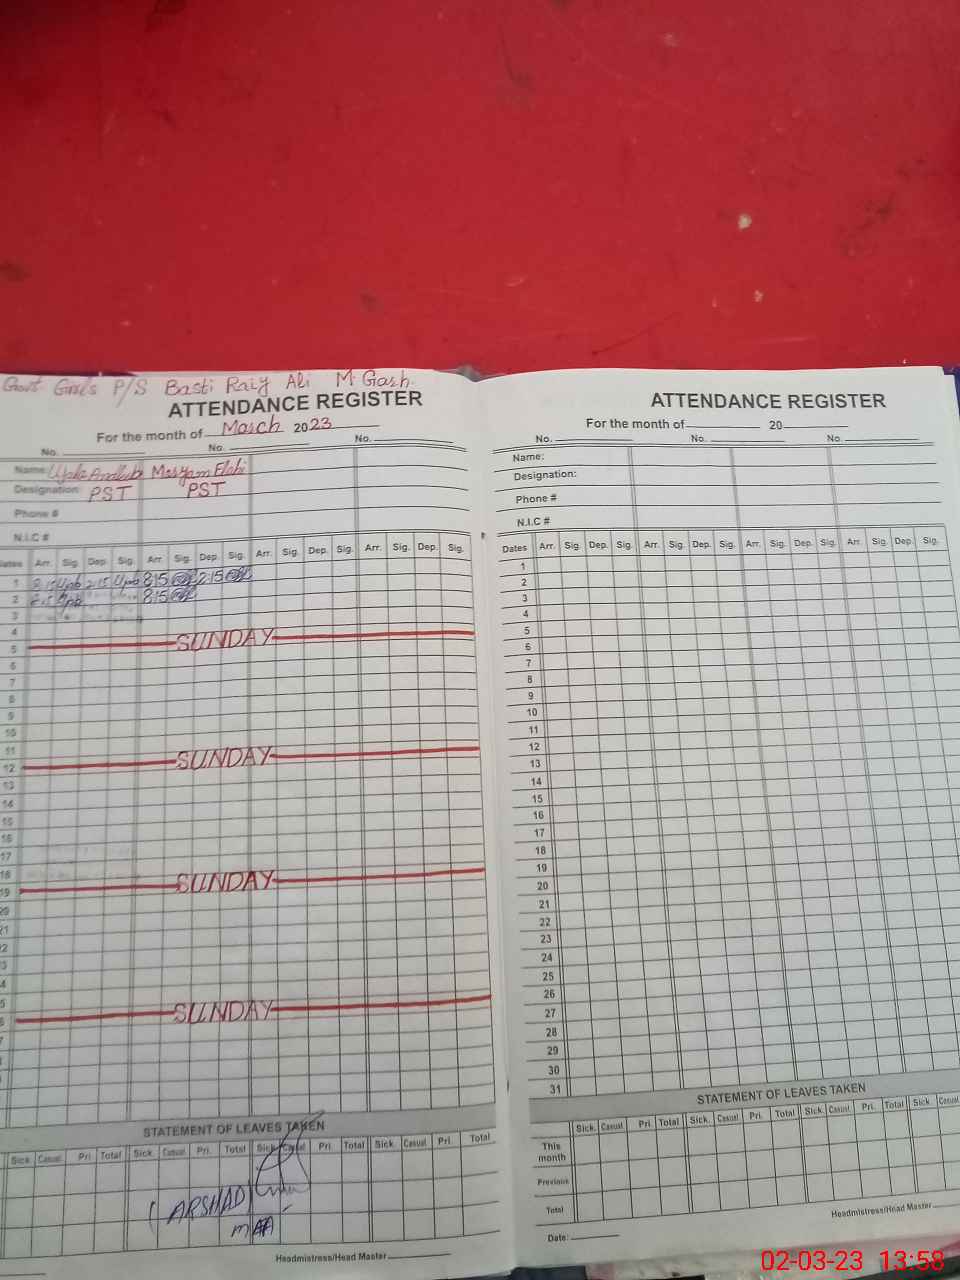 Govt Girls P/S Basti Raiy Ali M. Garh.
ATTENDANCE REGISTER
For the month of March 2023
No. No. No.
Name: Maryam Elahi
Designation: PST PST
Phone #
N.I.C #
Dates Arr. Sig. Dep. Sig. Arr. Sig. Dep. Sig. Arr. Sig. Dep. Sig. Arr. Sig. Dep. Sig.
1 8:15 2:15 815 215
2 815
3
4
5 SUNDAY
6
7
8
9
10
11
12 SUNDAY
13
14
15
16
17
18
19 SUNDAY
20
21
22
23
24
25
26 SUNDAY
STATEMENT OF LEAVES TAKEN
Sick Casual Pri. Total Sick. Casual Pri. Total Sick Casual Pri. Total Sick. Casual Pri. Total
(ARSHAD)
Headmistress/Head Master
ATTENDANCE REGISTER
For the month of 20
No. No. No.
Name:
Designation:
Phone #
N.I.C #
Dates Arr. Sig. Dep. Sig. Arr. Sig. Dep. Sig. Arr. Sig. Dep. Sig. Arr. Sig. Dep. Sig.
1
2
3
4
5
6
7
8
9
10
11
12
13
14
15
16
17
18
19
20
21
22
23
24
25
26
27
28
29
30
31
STATEMENT OF LEAVES TAKEN
Sick. Casual Pri. Total Sick. Casual Pri. Total Sick. Casual Pri. Total Sick. Casual
This month
Previous
Total
Date: Headmistress/Head Master
02-03-23 13:58